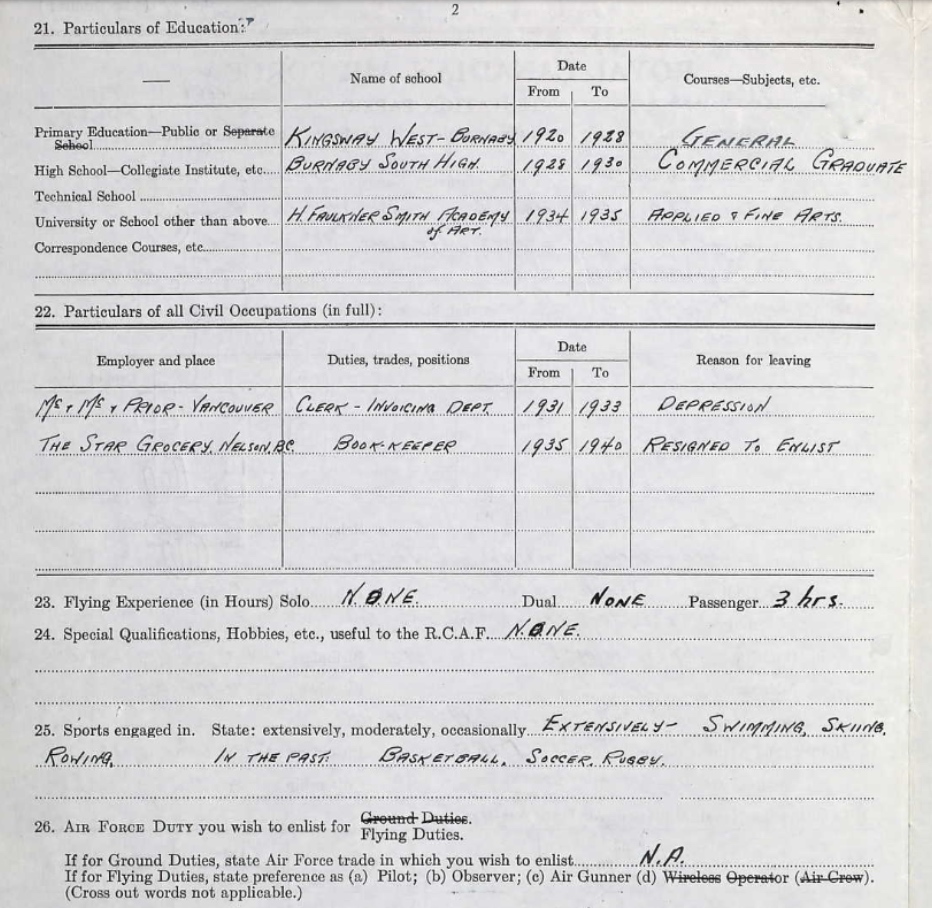 2
21. Particulars of Education:
Name of school
Date
Courses—Subjects, etc.
From To
Primary Education—Public or Separate School KINGSWAY WEST-BURNABY 1920 1928 GENERAL
High School—Collegiate Institute, etc. BURNABY SOUTH HIGH. 1928 1930 COMMERCIAL GRADUATE
Technical School
University or School other than above H. FAULKNER SMITH ACADEMY of ART. 1934 1935 APPLIED & FINE ARTS.
Correspondence Courses, etc.
22. Particulars of all Civil Occupations (in full):
Employer and place
Duties, trades, positions
Date
Reason for leaving
From To
Mc & Mc & PRIOR - VANCOUVER CLERK - INVOICING DEPT. 1931 1933 DEPRESSION
THE STAR GROCERY, NELSON, B.C. BOOK-KEEPER 1935 1940 RESIGNED TO ENLIST
23. Flying Experience (in Hours) Solo NONE. Dual NONE Passenger 3 hrs.
24. Special Qualifications, Hobbies, etc., useful to the R.C.A.F. NONE.
25. Sports engaged in. State: extensively, moderately, occasionally EXTENSIVELY - SWIMMING, SKIING,
ROWING, IN THE PAST: BASKETBALL, SOCCER, RUGBY.
26. AIR FORCE DUTY you wish to enlist for Ground Duties.
Flying Duties.
If for Ground Duties, state Air Force trade in which you wish to enlist N.A.
If for Flying Duties, state preference as (a) Pilot; (b) Observer; (c) Air Gunner (d) Wireless Operator (Air Crew).
(Cross out words not applicable.)